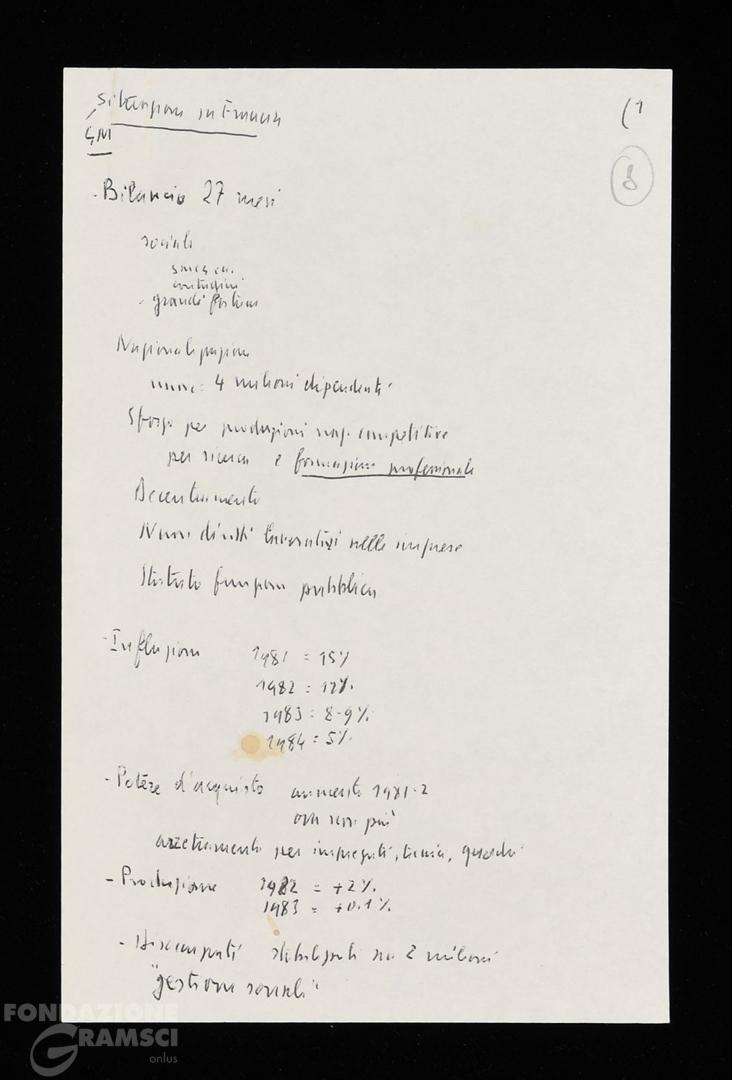 Situazione in Francia
(1
GM
8
- Bilancio 27 mesi
sociali
- grandi
Nazionalizzazioni
4 milioni dipendenti
Sforzo per produzioni naz. competitive
per ricerca e formazione professionale
Decentramento
Nuovi diritti lavoratori nelle imprese
Statuto funzione pubblica
- Inflazione 1981 = 15%
1982 = 12%.
1983 = 8-9%.
1984 = 5%.
- Potere d'acquisto aumento 1981-2
ora non più
arretramento per impiegati, tecnici, quadri
- Produzione 1982 = +2%.
1983 = +0.1%.
- Disoccupati stabilizzati su 2 milioni
"gestione sociale"
FONDAZIONE
GRAMSCI
onlus